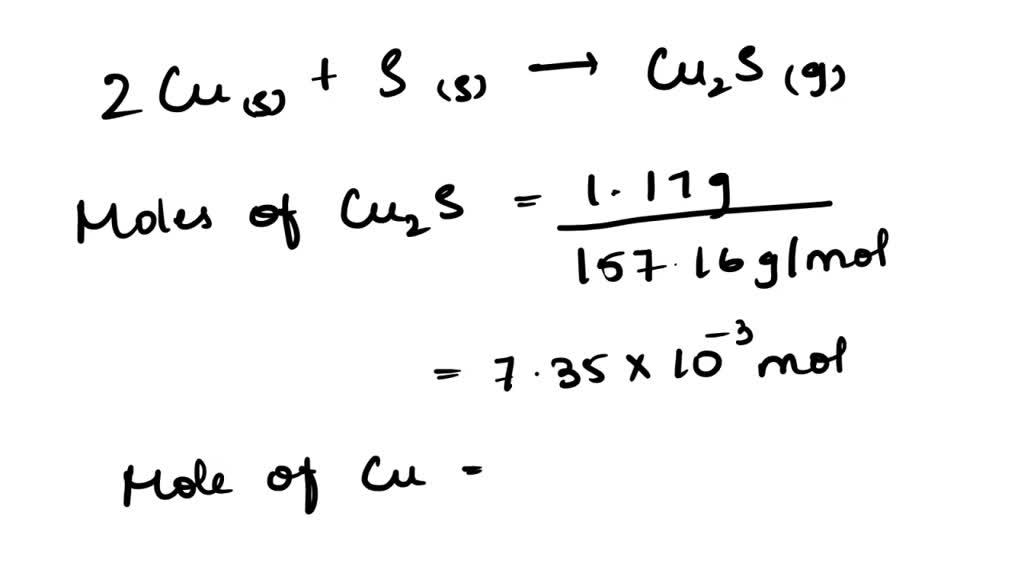 2 Cu (s) + S (s) → Cu₂S (g)
Moles of Cu₂S = 1.17g / 157.16 g/mol
= 7.35 × 10⁻³ mol
Mole of Cu =